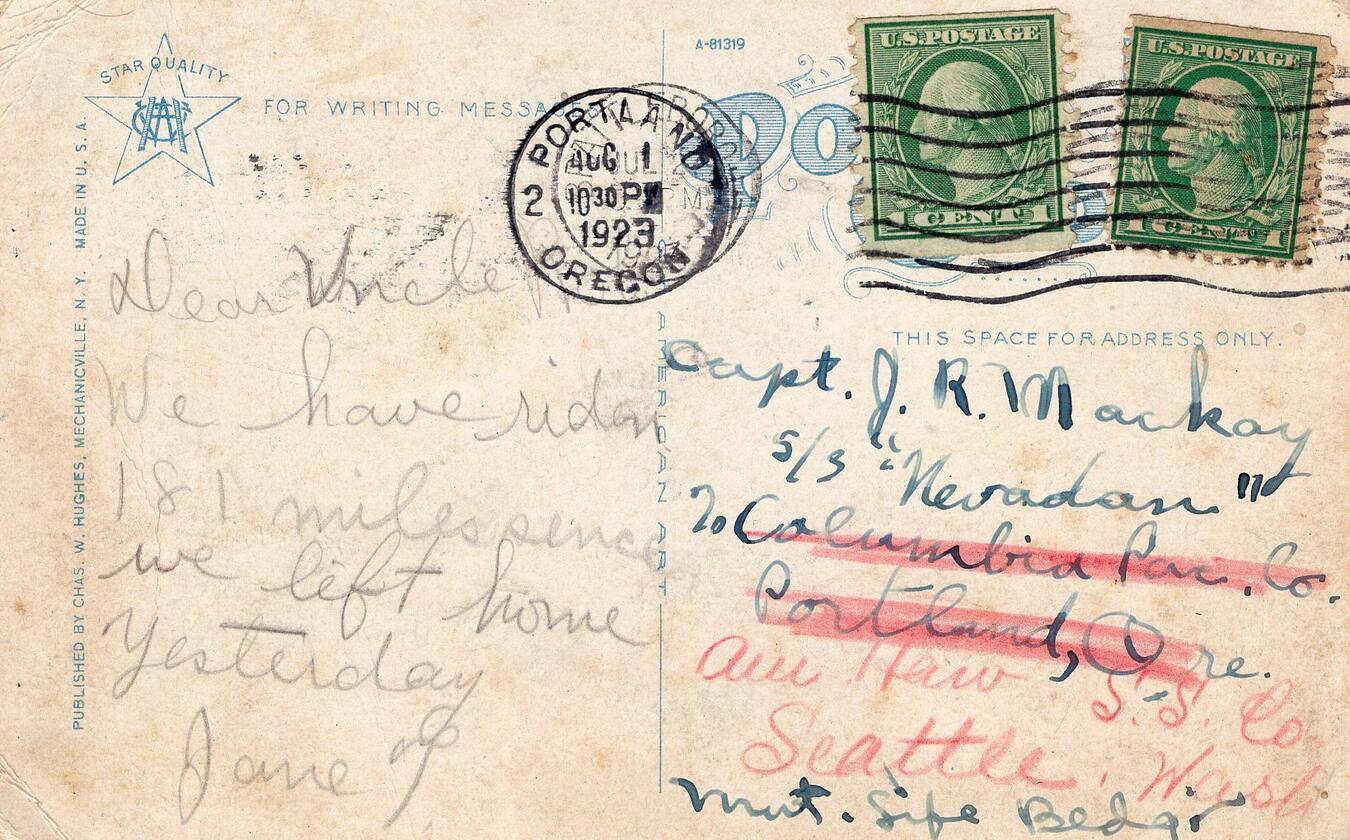 STAR QUALITY
FOR WRITING MESSAGES
PUBLISHED BY CHAS. W. HUGHES, MECHANICVILLE, N. Y. MADE IN U. S. A.
PORTLAND
AUG 1
10 30 PM
1923
2
OREGON
A-81319
Po
U.S.POSTAGE
1 CENT 1
U.S.POSTAGE
1 CENT 1
AMERICAN ART
THIS SPACE FOR ADDRESS ONLY.
Dear Uncle
We have riden
181 miles sence
we left home
Yesterday
Jane
Capt. J. R. Mackay
S/S "Nevadan"
To Columbia Pac. Co.
Portland, Ore.
Am Haw. S.S. Co.
Seattle, Wash